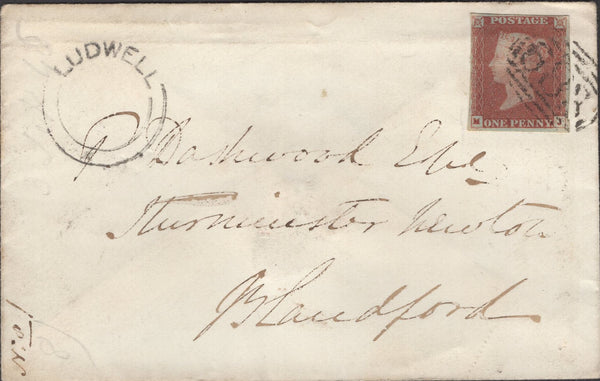 LUDWELL
POSTAGE
ONE PENNY
P Dashwood Esqre
Sturminster Newton
Blandford